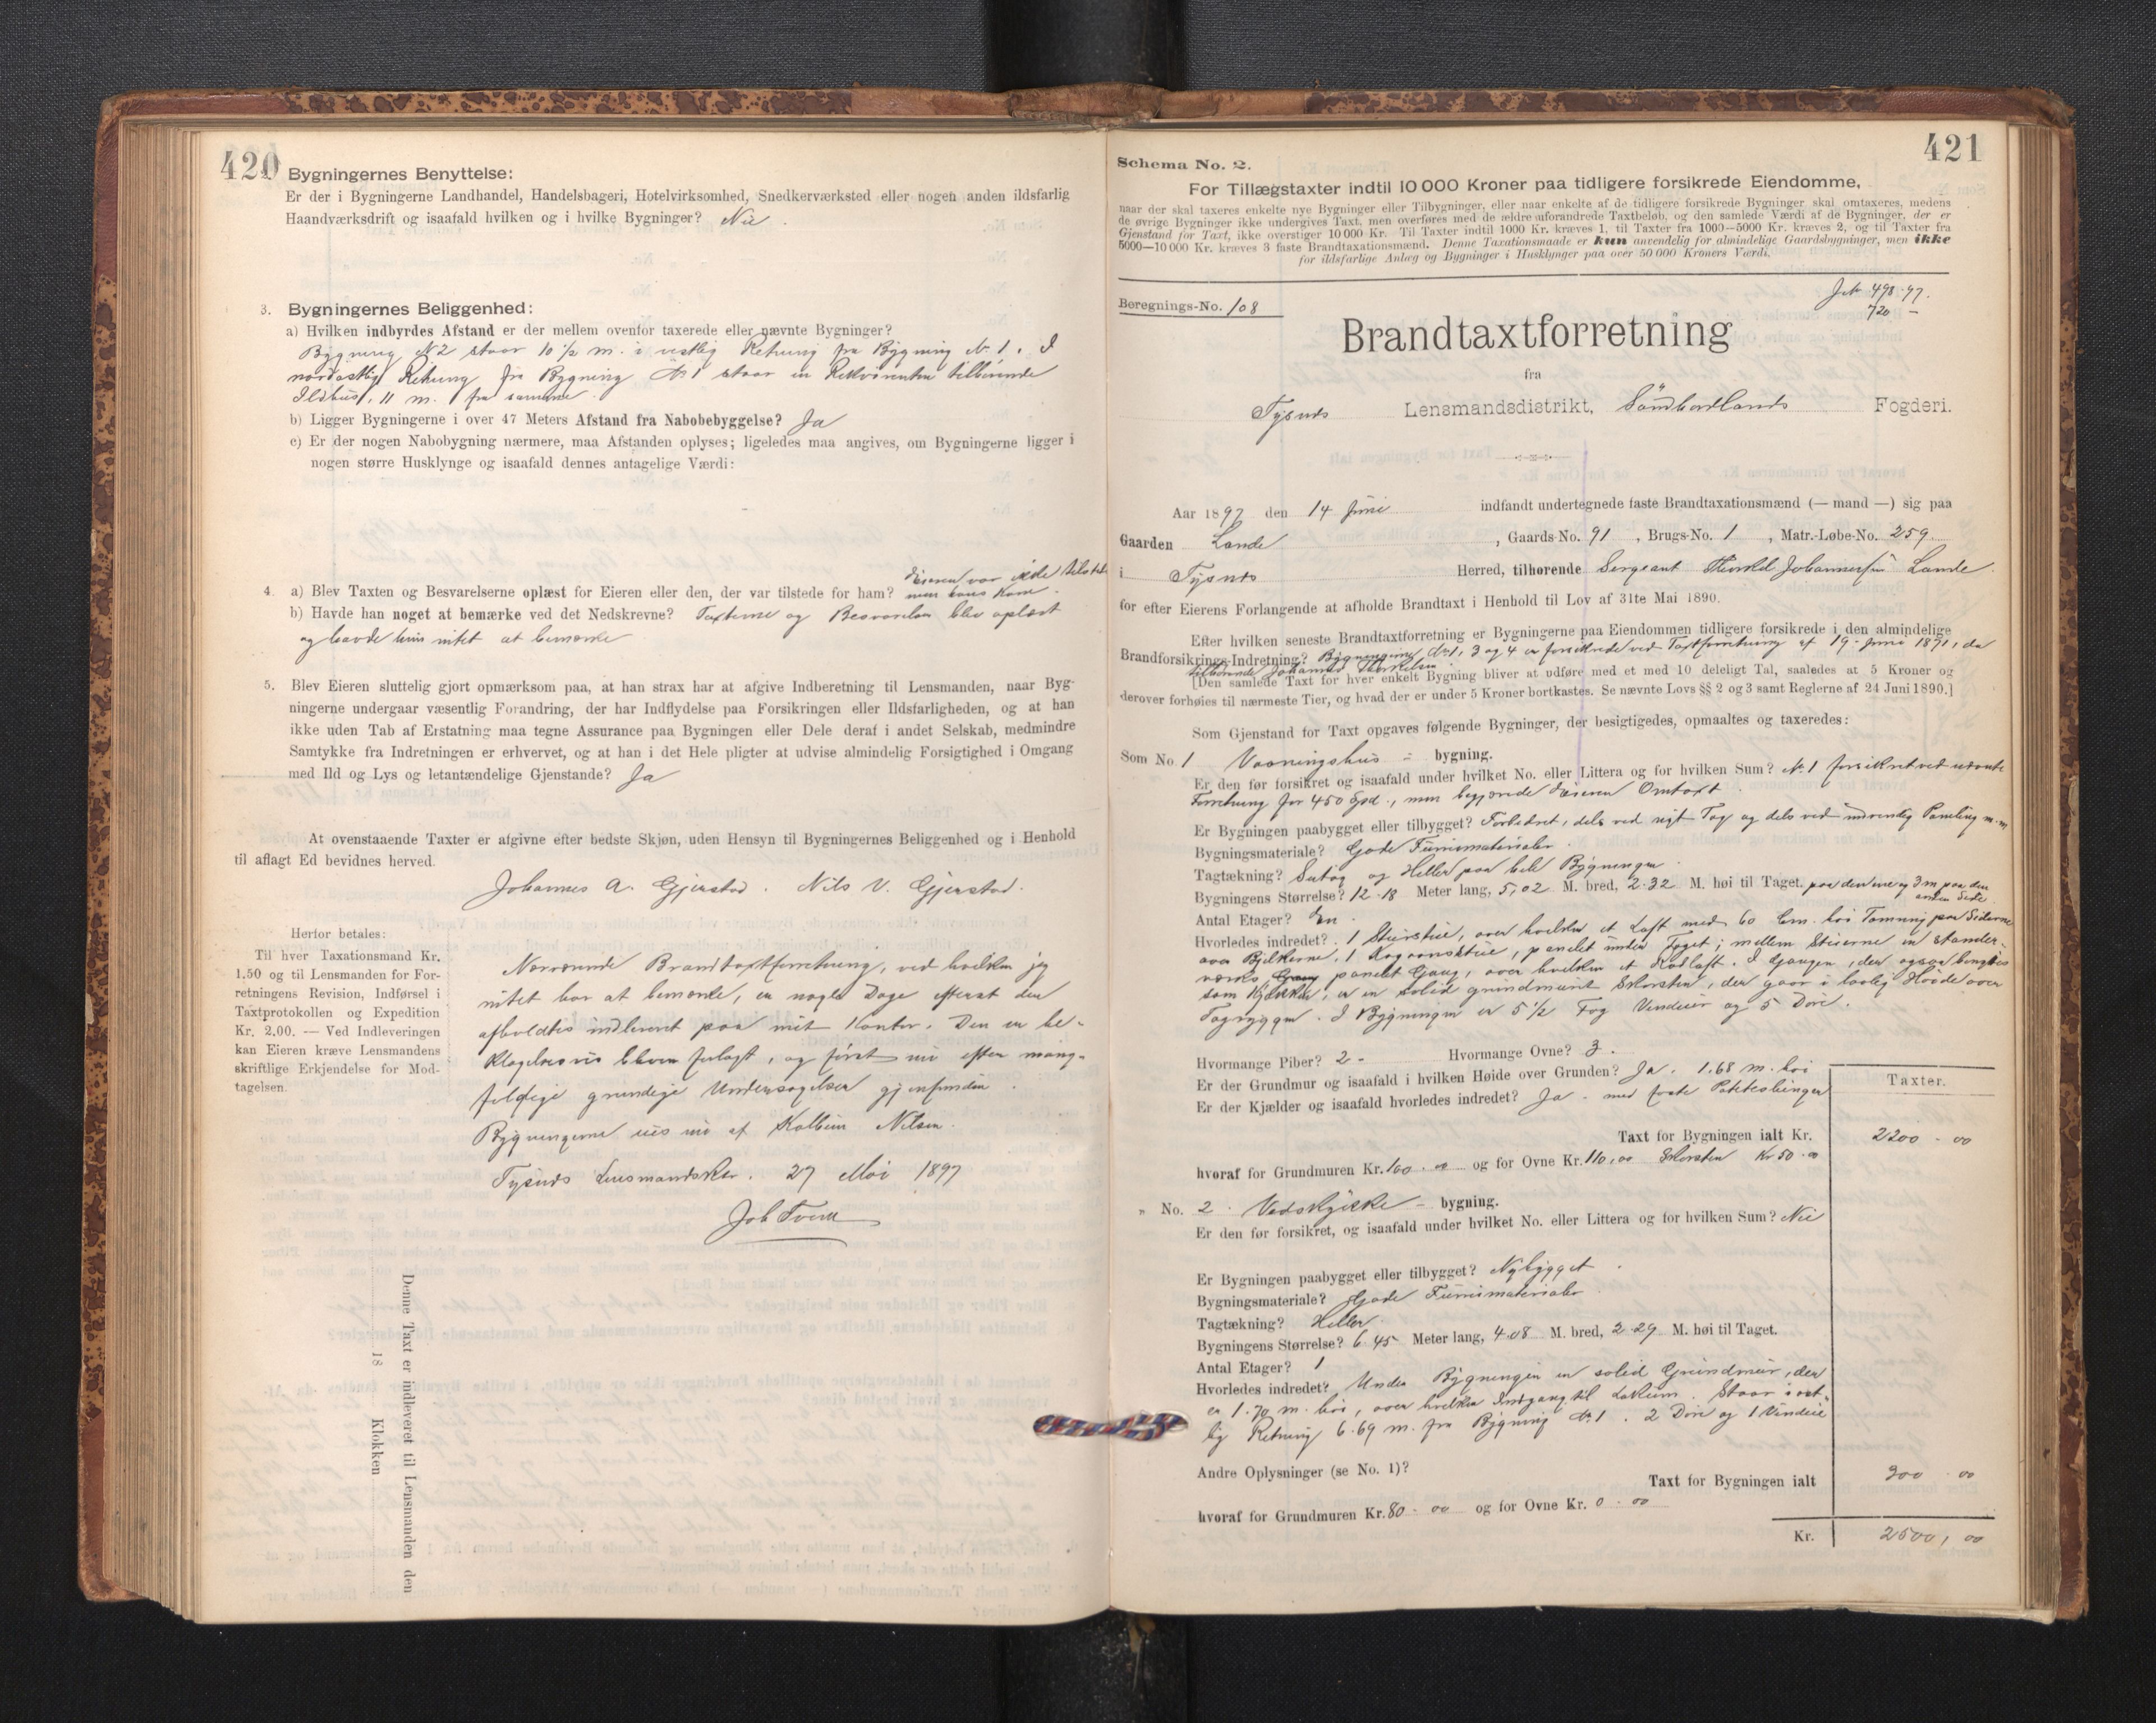 420
Bygningernes Benyttelse:
Er der i Bygningerne Landhandel, Handelsbageri, Hotelvirksomhed, Snedkerværksted eller nogen anden ildsfarlig
Haandværksdrift og isaafald hvilken og i hvilke Bygninger? Nei
3. Bygningernes Beliggenhed:
a) Hvilken indbyrdes Afstand er der mellem ovenfor taxerede eller nævnte Bygninger?
Bygning N 2 staar 10 1/2 m. i vestlig Retning fra Bygning N. 1. I
nordøstlig Retning fra Bygning No 1 staar en Rekvirenten tilhørende
Ildhus, 11 m. fra samme.
b) Ligger Bygningerne i over 47 Meters Afstand fra Nabobebyggelse? Ja
c) Er der nogen Nabobygning nærmere, maa Afstanden oplyses; ligeledes maa angives, om Bygningerne ligger i
nogen større Husklynge og isaafald dennes antagelige Værdi:
Eieren var ikke tilstede
4. a) Blev Taxten og Besvarelserne oplæst for Eieren eller den, der var tilstede for ham? men hans Kone.
b) Havde han noget at bemærke ved det Nedskrevne? Taxterne og Besvarelsen blev oplæst
og havde hun intet at bemærke
5. Blev Eieren sluttelig gjort opmærksom paa, at han strax har at afgive Indberetning til Lensmanden, naar Byg-
ningerne undergaar væsentlig Forandring, der har Indflydelse paa Forsikringen eller Ildsfarligheden, og at han
ikke uden Tab af Erstatning maa tegne Assurance paa Bygningen eller Dele deraf i andet Selskab, medmindre
Samtykke fra Indretningen er erhvervet, og at han i det Hele pligter at udvise almindelig Forsigtighed i Omgang
med Ild og Lys og letantændelige Gjenstande? Ja
At ovenstaaende Taxter er afgivne efter bedste Skjøn, uden Hensyn til Bygningernes Beliggenhed og i Henhold
til aflagt Ed bevidnes herved.
Johannes A. Gjerstad. Nils V. Gjerstad.
Herfor betales:
Til hver Taxationsmand Kr.
1.50 og til Lensmanden for For-
retningens Revision, Indførsel i
Taxtprotokollen og Expedition
Kr. 2.00. — Ved Indleveringen
kan Eieren kræve Lensmandens
skriftlige Erkjendelse for Mod-
tagelsen.
Nærværende Brandtaxtforretning, ved hvilken jeg
intet har at bemærke, er nogle Dage efterat den
afholdtes indleveret paa mit Kontor. Den er be-
klageligvis bleven forlagt, og først nu efter mang-
foldige grundige Undersøgelser gjenfunden.
Bygningerne eies nu af Kolbein Nilsen.
Tysnes Lensmandskr. 27 Mai 1897
Job Tveit
Denne Taxt er indleveret til Lensmanden den
18 Klokken
421
Schema No. 2.
For Tillægstaxter indtil 10 000 Kroner paa tidligere forsikrede Eiendomme,
naar der skal taxeres enkelte nye Bygninger eller Tilbygninger, eller naar enkelte af de tidligere forsikrede Bygninger skal omtaxeres, medens
de øvrige Bygninger ikke undergives Taxt, men overføres med de ældre uforandrede Taxtbeløb, og den samlede Værdi af de Bygninger, der er
Gjenstand for Taxt, ikke overstiger 10 000 Kr. Til Taxter indtil 1000 Kr. kræves 1, til Taxter fra 1000—5000 Kr. kræves 2, og til Taxter fra
5000—10 000 Kr. kræves 3 faste Brandtaxationsmænd. Denne Taxationsmaade er kun anvendelig for almindelige Gaardsbygninger, men ikke
for ildsfarlige Anlæg og Bygninger i Husklynger paa over 50 000 Kroners Værdi.
Beregnings-No. 108
498.97.
720 –
Brandtaxtforretning
fra
Tysnes Lensmandsdistrikt, Søndhordlands Fogderi.
Aar 1897 den 14 Juni indfandt undertegnede faste Brandtaxationsmænd (— mand —) sig paa
Gaarden Lande, Gaards-No. 91, Brugs-No. 1, Matr.-Løbe-No. 259.
i Tysnes Herred, tilhørende Sergeant Thorkel Johannessen Lande.
for efter Eierens Forlangende at afholde Brandtaxt i Henhold til Lov af 31te Mai 1890.
Efter hvilken seneste Brandtaxtforretning er Bygningerne paa Eiendommen tidligere forsikrede i den almindelige
Brandforsikrings-Indretning? Bygningerne No 1, 3 og 4 er forsikrede ved Taxtforretning af 19 Juni 1871, da
tilhørende Johannes Thorkelsen.
[Den samlede Taxt for hver enkelt Bygning bliver at udføre med et med 10 deleligt Tal, saaledes at 5 Kroner og
derover forhøies til nærmeste Tier, og hvad der er under 5 Kroner bortkastes. Se nævnte Lovs §§ 2 og 3 samt Reglerne af 24 Juni 1890.]
Som Gjenstand for Taxt opgaves følgende Bygninger, der besigtigedes, opmaaltes og taxeredes:
Som No. 1 Vaaningshus - bygning.
Er den før forsikret og isaafald under hvilket No. eller Littera og for hvilken Sum? No. 1 forsikret ved nævnte
Forretning for 450 Spd., men begjærede Eieren Omtaxt.
Er Bygningen paabygget eller tilbygget? Forbedret, dels ved nyt Tag og dels ved indvendig Paneling m.m.
Bygningsmateriale? Gode Furumaterialer.
Tagtækning? Sutag og Heller paa hele Bygningen
Bygningens Størrelse? 12.18 Meter lang, 5,02 M. bred, 2.32 M. høi til Taget. paa den ene og 3 m paa den
anden Side
Antal Etager? En.
Hvorledes indredet? 1 Stuerstue, over hvilken et Loft med 60 Cm. høi Tømring paa Siderne
over Bjelkerne, 1 Rogaonstue, panelet under Taget; mellem Stuerne en stander-
værks Gang panelt Gang, over hvilken et Rodloft. I Gangen, der ogsaa benyttes
som Kjøkken, er en solid grundmuret Skorsten, der gaar i lovlig Høide over
Tagryggen. I Bygningen er 5 1/2 Fag Vinduer og 5 Døre.
Hvormange Piber? 2 - Hvormange Ovne? 3.
Er der Grundmur og isaafald i hvilken Høide over Grunden? Ja. 1.68 m. høi
Er der Kjælder og isaafald hvorledes indredet? Ja - med faste Potetesbinger
Taxter.
Taxt for Bygningen ialt Kr. 2200 - 00
hvoraf for Grundmuren Kr. 160.00 og for Ovne Kr. 110,00 Skorsten Kr 50.00
" No. 2. Vedskykke - bygning.
Er den før forsikret, og isaafald under hvilket No. eller Littera og for hvilken Sum? Nei
Er Bygningen paabygget eller tilbygget? Nybygget.
Bygningsmateriale? Gode Furumaterialer
Tagtækning? Heller.
Bygningens Størrelse? 6.45 Meter lang, 4.08 M. bred, 2.29 M. høi til Taget.
Antal Etager? 1
Hvorledes indredet? Under Bygningen en solid Grundmur, der
er 1.70 m. høi, over hvilken Indgang til Lokum. Staar i øst-
lig Retning 6.69 m. fra Bygning No. 1. 2 Døre og 1 Vindue
Andre Oplysninger (se No. 1)?
Taxt for Bygningen ialt 300 . 00
hvoraf for Grundmuren Kr. 80 - 00 og for Ovne Kr. 0 - 00
Kr. 2500, 00